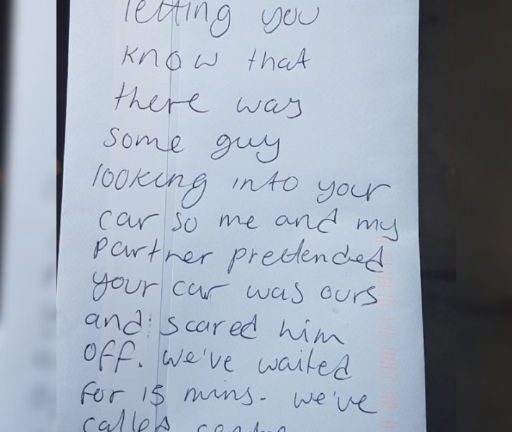 letting you
know that
there was
some guy
looking into your
car so me and my
partner pretended
your car was ours
and scared him
off. we've waited
for 15 mins. we've
called